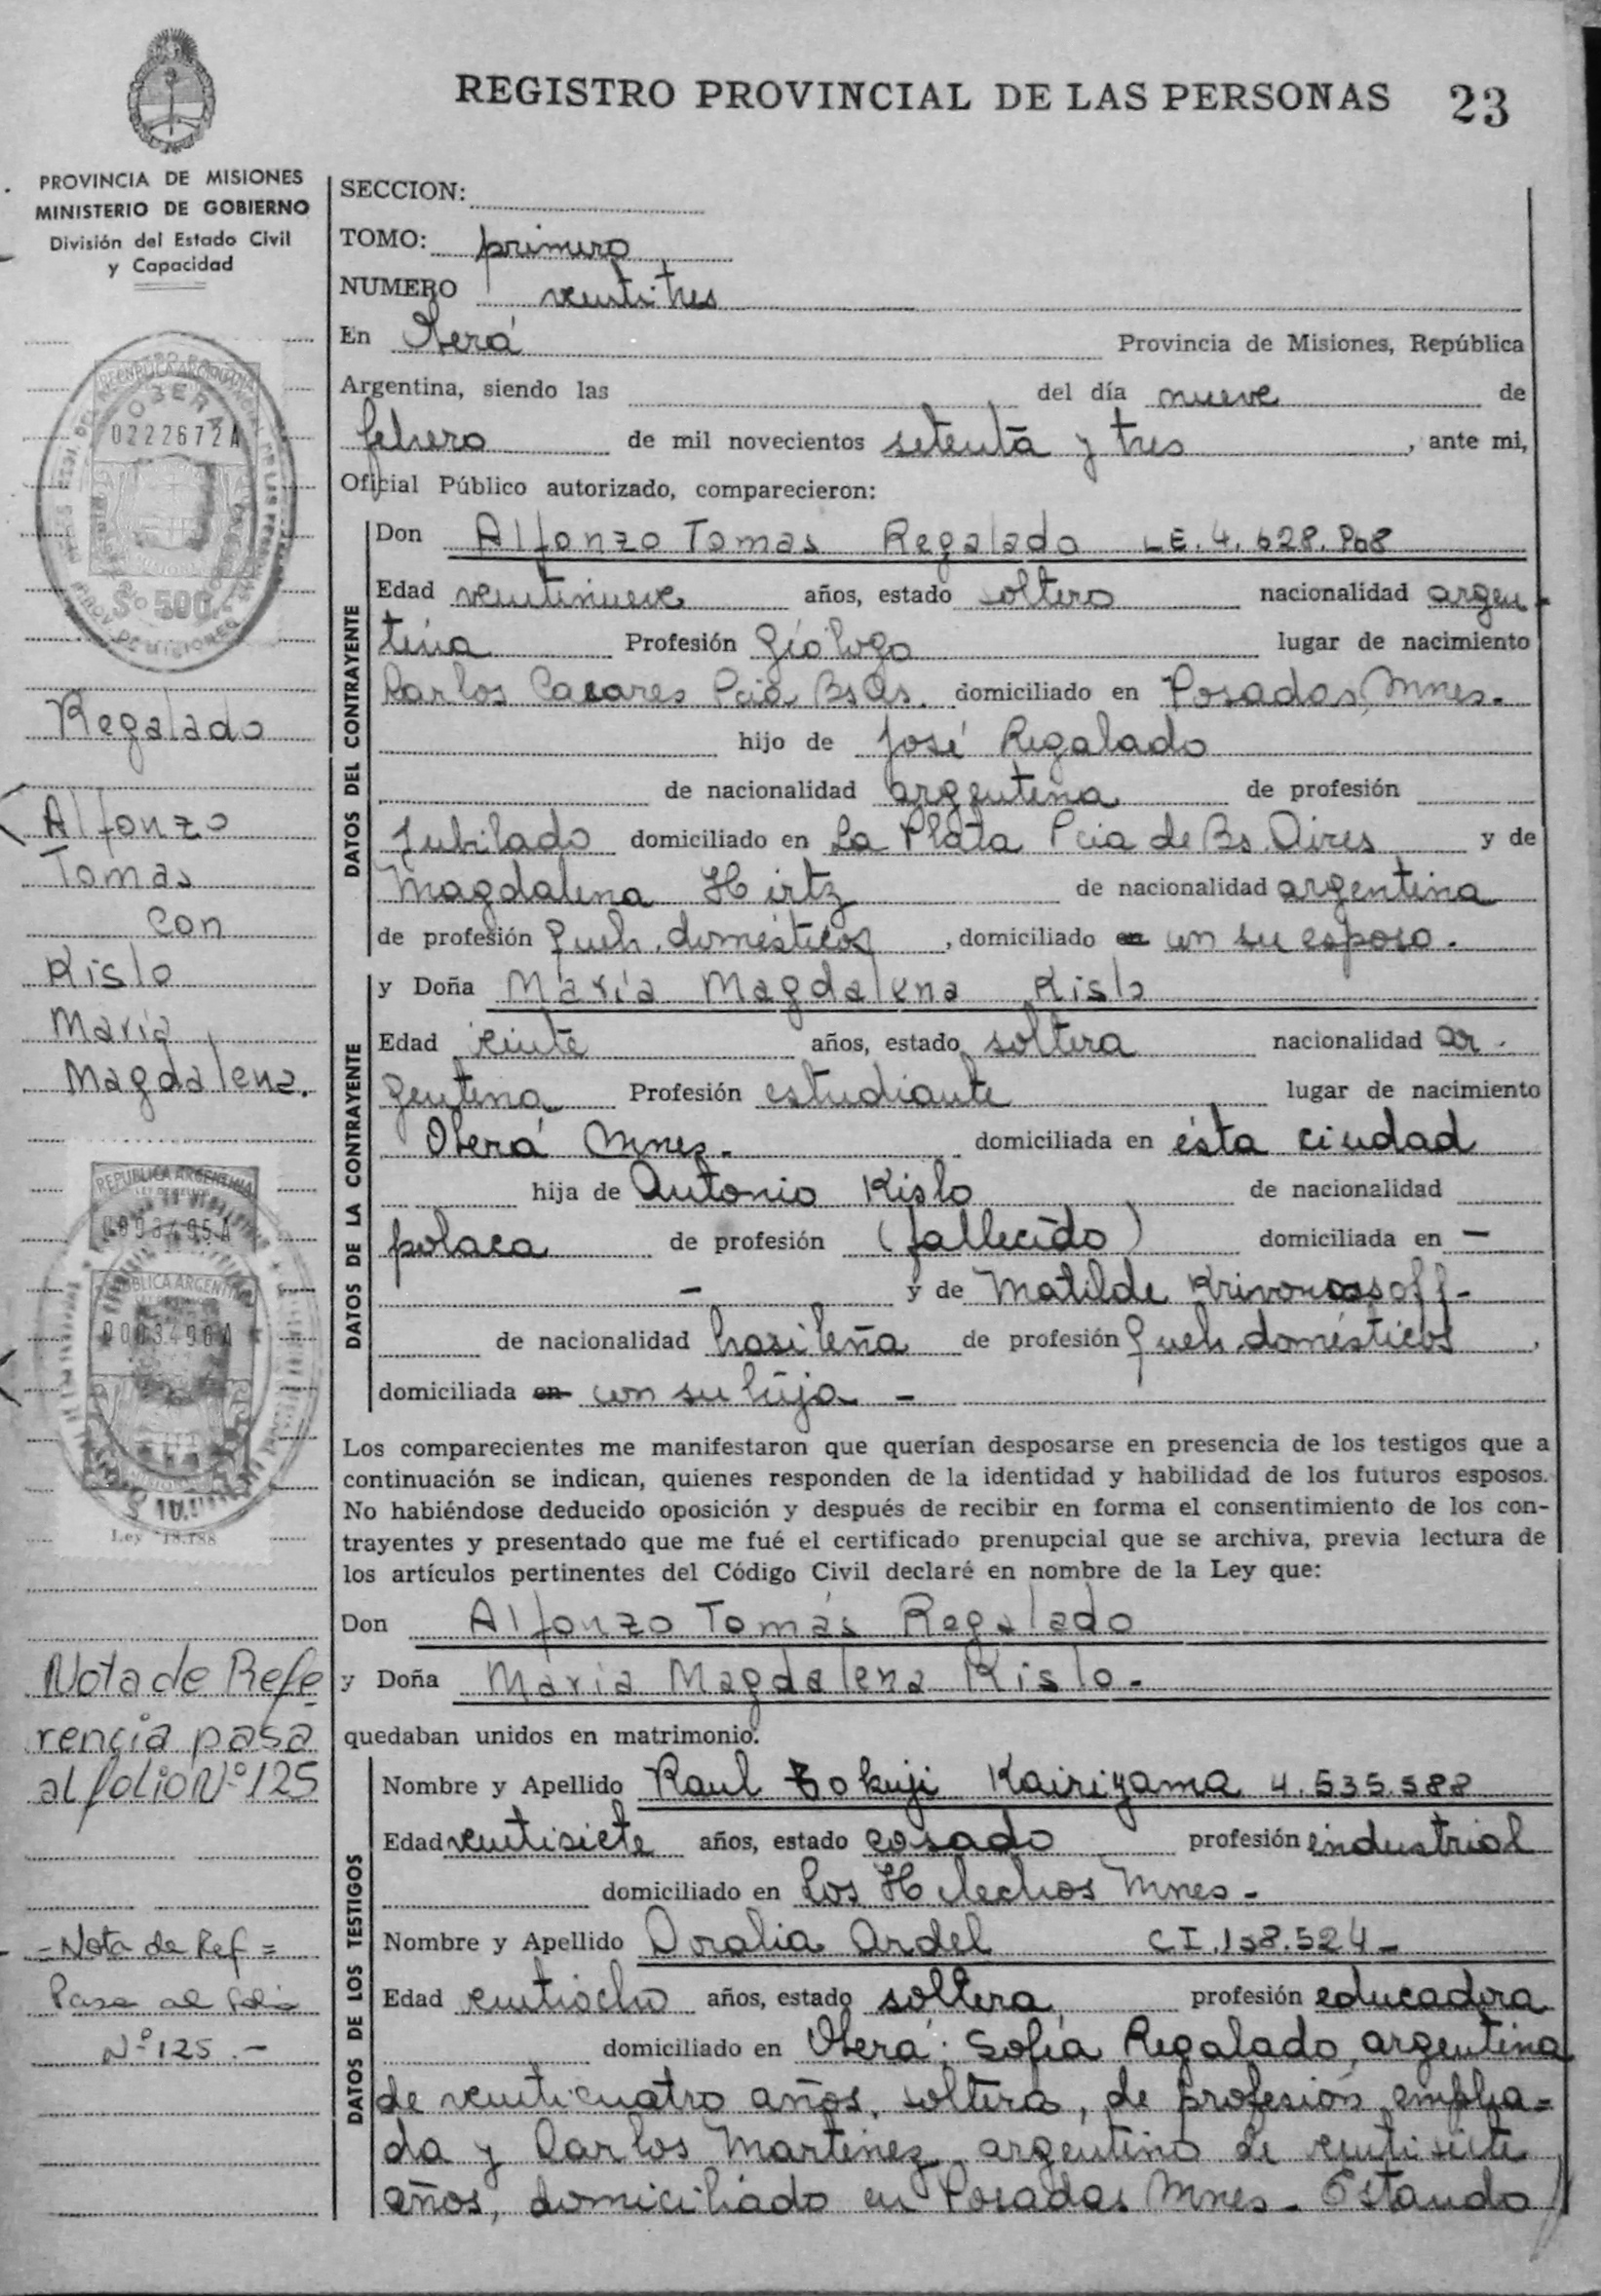 REGISTRO PROVINCIAL DE LAS PERSONAS 23
PROVINCIA DE MISIONES
MINISTERIO DE GOBIERNO
División del Estado Civil
y Capacidad
SECCION:
TOMO: primero
NUMERO veintitres
En Oberá Provincia de Misiones, República
Argentina, siendo las del día nueve de
febrero de mil novecientos setenta y tres, ante mi,
Oficial Público autorizado, comparecieron:
OBERA
0222672A
$ 500
PROV. DE MISIONES
Regalado
Alfonzo
Tomas
con
Kislo
Maria
Magdalena.
DATOS DEL CONTRAYENTE
Don Alfonzo Tomas Regalado LE. 4.628.908
Edad veintinueve años, estado soltero nacionalidad argen-
tina Profesión Giólogo lugar de nacimiento
Carlos Casares Pcia Bs As. domiciliado en Posadas, Mnes.
hijo de José Regalado
de nacionalidad argentina de profesión
Jubilado domiciliado en La Plata Pcia de Bs. Aires y de
Magdalena Hirtz de nacionalidad argentina
de profesión Queh. domésticos, domiciliado en con su esposo.
DATOS DE LA CONTRAYENTE
y Doña María Magdalena Kislo
Edad veinte años, estado soltera nacionalidad ar-
gentina Profesión estudiante lugar de nacimiento
Oberá Mnes. domiciliada en ésta ciudad
hija de Antonio Kislo de nacionalidad
polaca de profesión (fallecido) domiciliada en -
- y de Matilde Krivonossoff-
de nacionalidad brasileña de profesión Queh. domésticos,
domiciliada en con su hija -
REPUBLICA ARGENTINA
0003496A
$ 10.
Ley 18.188
Los comparecientes me manifestaron que querían desposarse en presencia de los testigos que a
continuación se indican, quienes responden de la identidad y habilidad de los futuros esposos.
No habiéndose deducido oposición y después de recibir en forma el consentimiento de los con-
trayentes y presentado que me fué el certificado prenupcial que se archiva, previa lectura de
los artículos pertinentes del Código Civil declaré en nombre de la Ley que:
Don Alfonzo Tomás Regalado
y Doña Maria Magdalena Kislo.-
quedaban unidos en matrimonio.
Nota de Refe
rencia pasa
al folio Nº 125
= Nota de Ref =
Pasa al folio
Nº 125.-
DATOS DE LOS TESTIGOS
Nombre y Apellido Raul Bokuji Kairiyama 4.535.588
Edad veintisiete años, estado casado profesión industrial
domiciliado en Los Helechos Mnes-
Nombre y Apellido Oralia Ardel CI.158.524-
Edad veintiocho años, estado soltera profesión educadora
domiciliado en Oberá; Sofía Regalado, argentina
de veinticuatro años, soltera, de profesión emplea=
da y Carlos Martinez, argentino de veintisiete
años, domiciliado en Posadas Mnes.- Estando